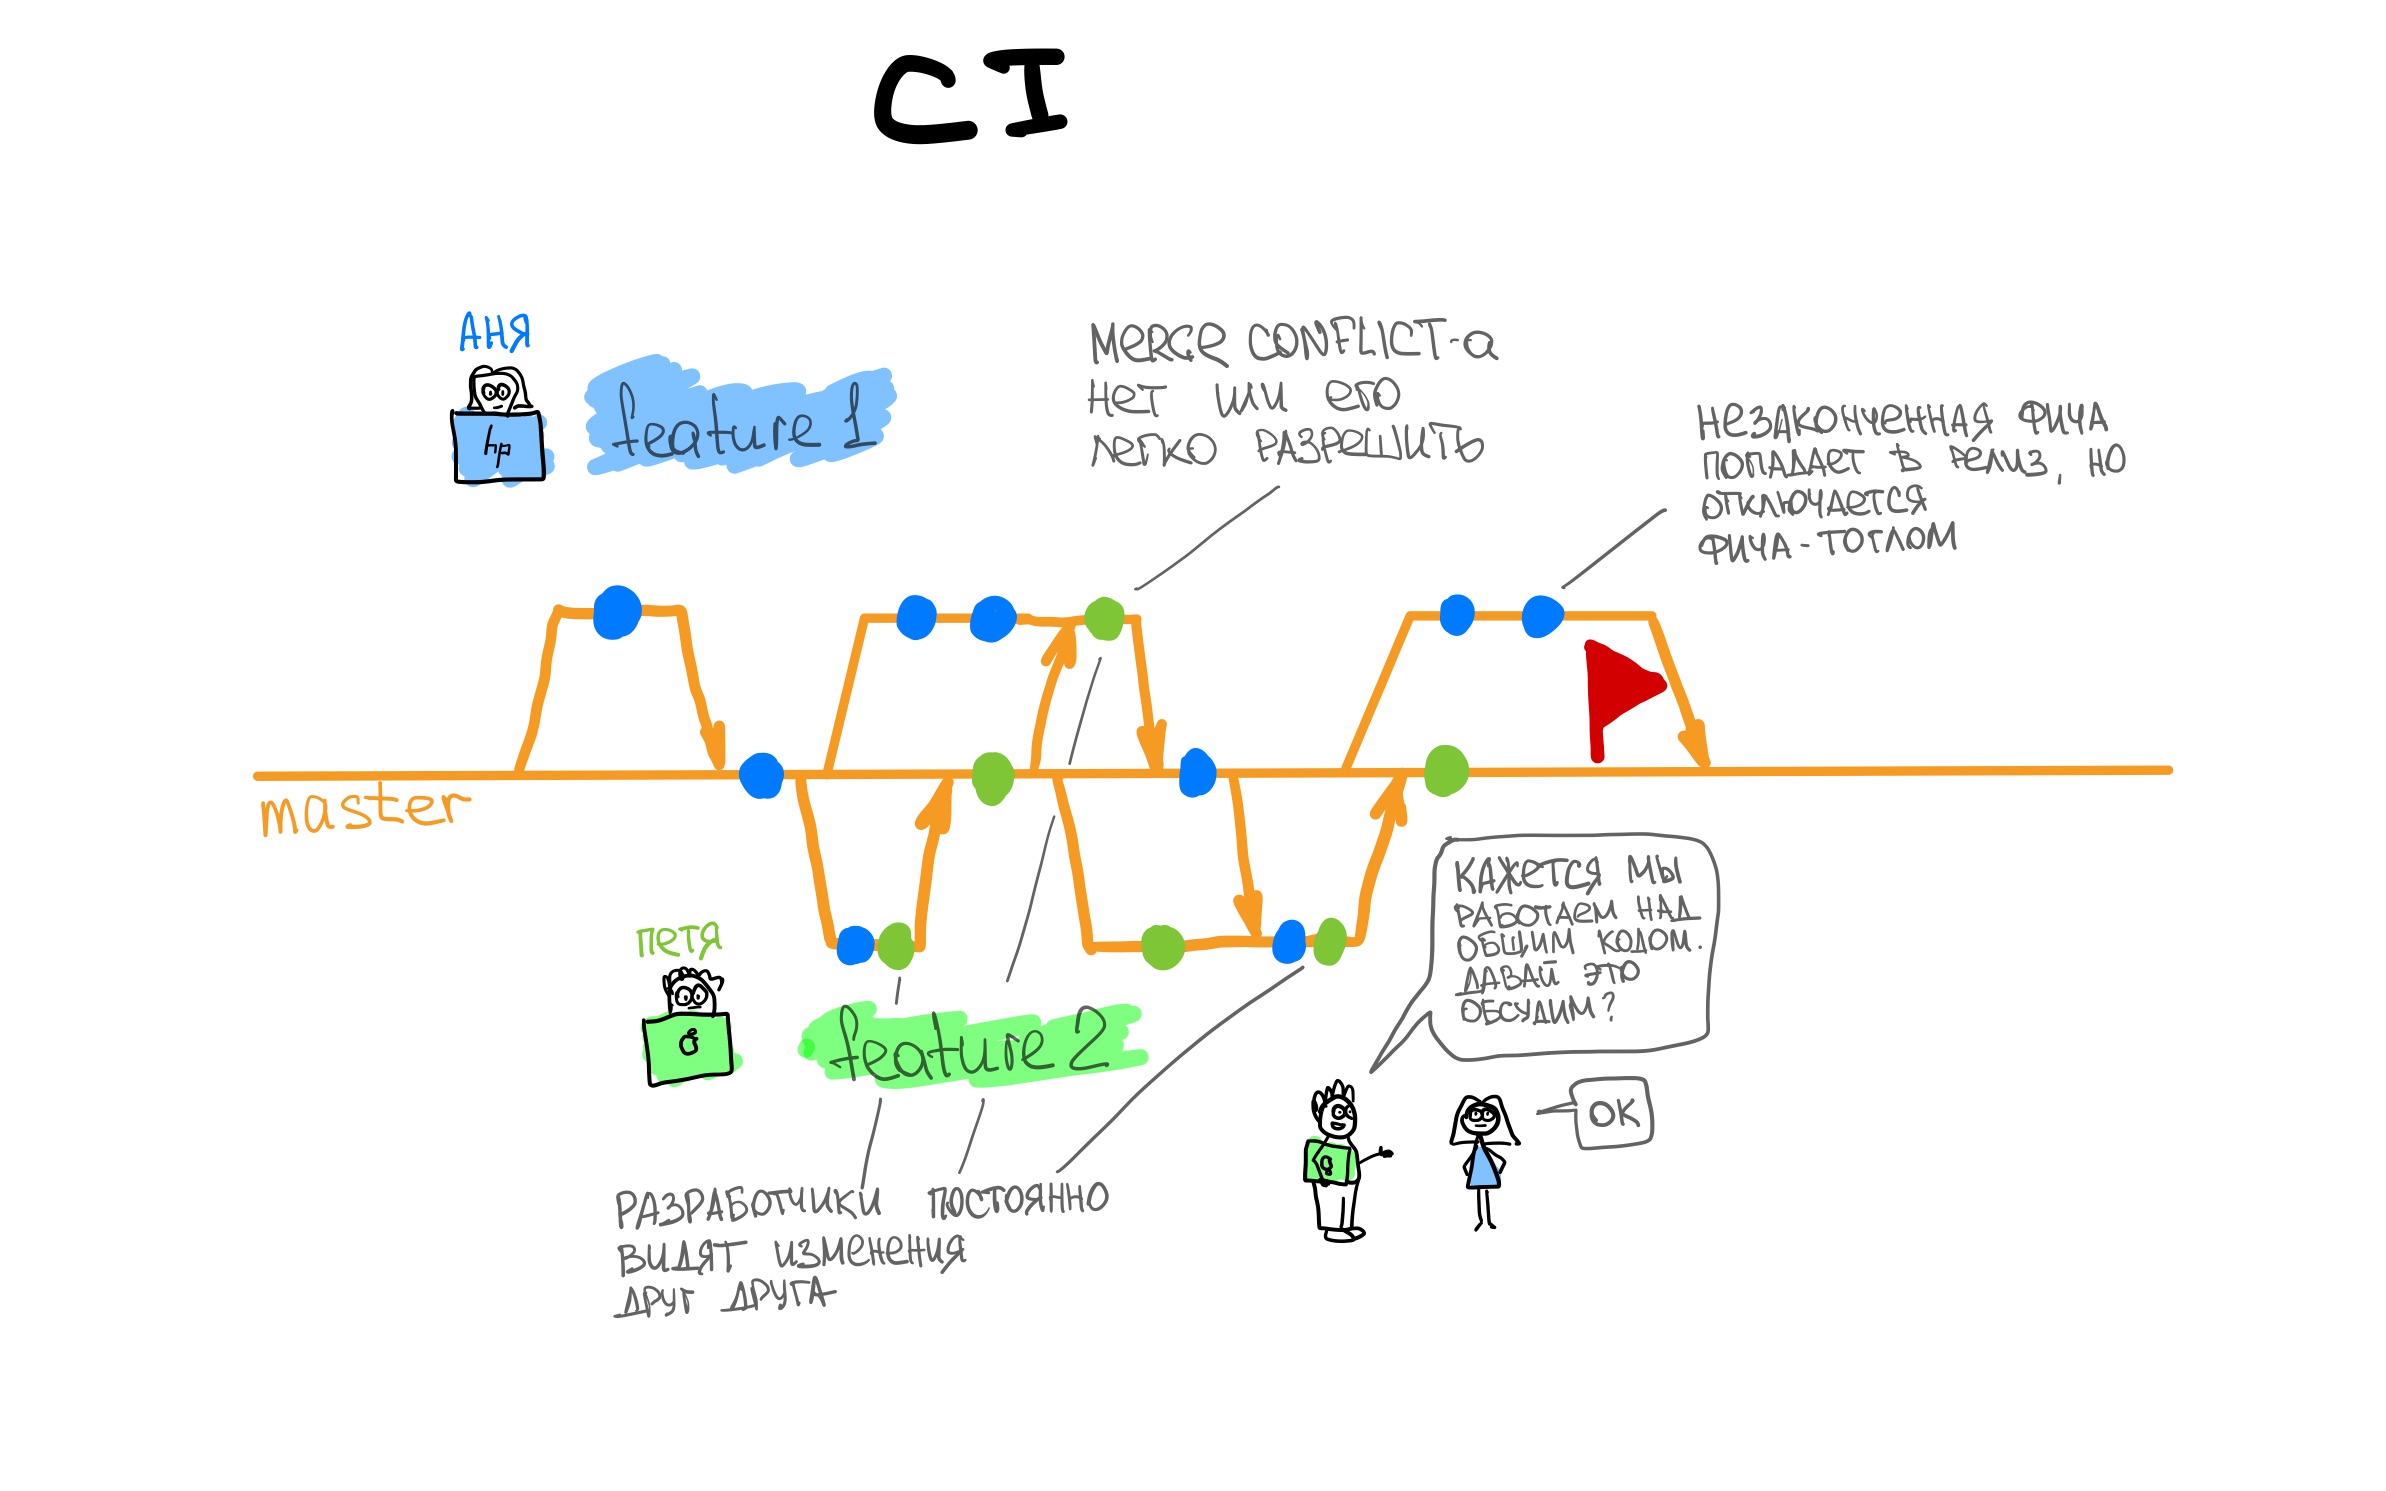 CI
АНЯ
feature 1
MERGE CONFLICT-а
НЕТ ИЛИ ЕГО
ЛЕГКО РАЗРЕШИТЬ
НЕЗАКОНЧЕННАЯ ФИЧА
ПОПАДАЕТ В РЕЛИЗ, НО
ОТКЛЮЧАЕТСЯ
ФИЧА-ТОГЛОМ
master
ПЕТЯ
feature 2
КАЖЕТСЯ МЫ
РАБОТАЕМ НАД
ОБЩИМ КОДОМ.
ДАВАЙ ЭТО
ОБСУДИМ?
OK
РАЗРАБОТЧИКИ ПОСТОЯННО
ВИДЯТ ИЗМЕНЕНИЯ
ДРУГ ДРУГА